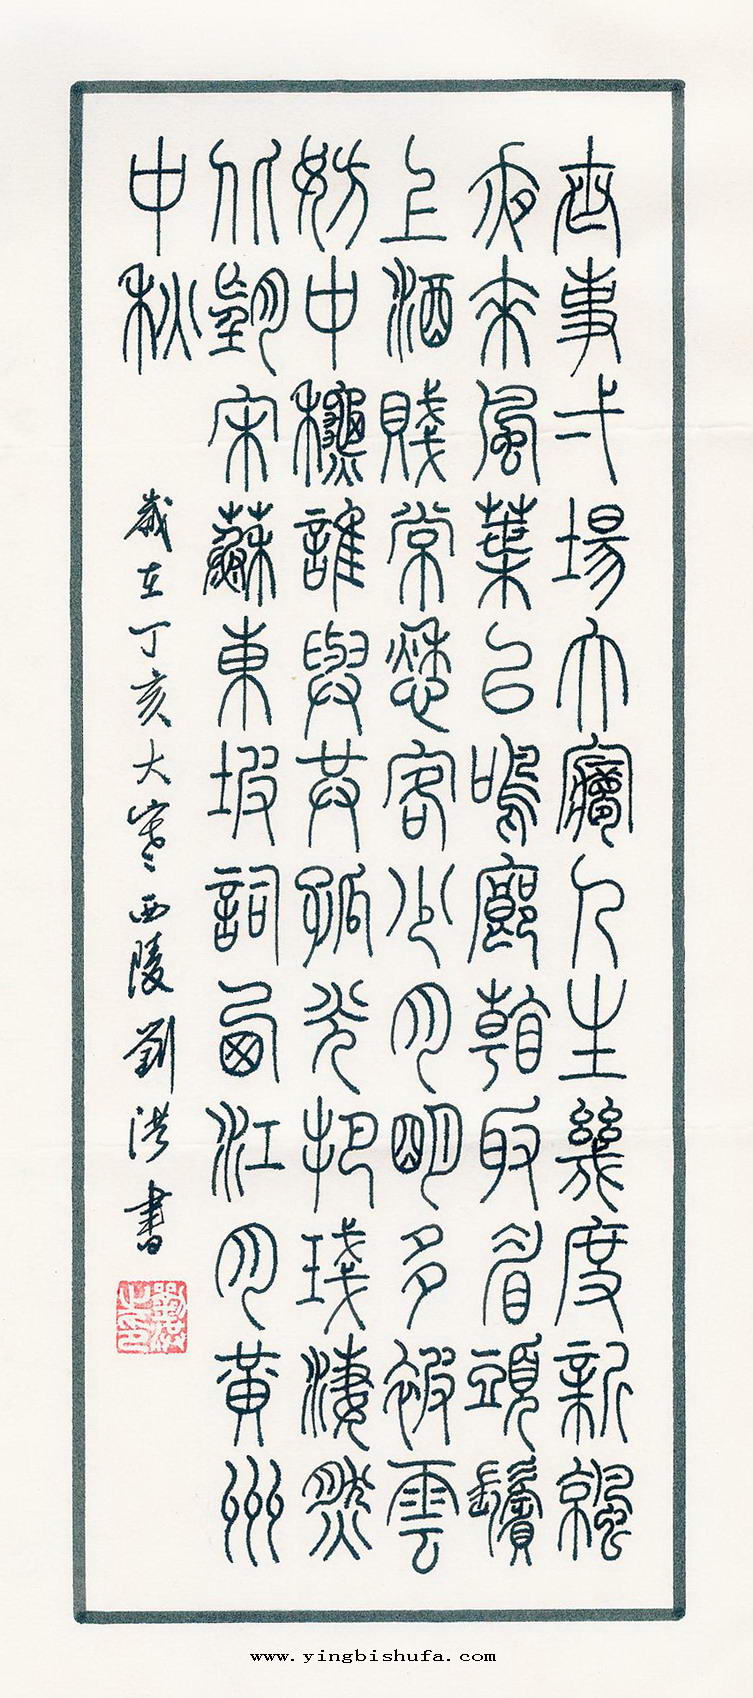 世事弌場大夢人生幾度新涼
夜來風葉已鳴廊看取眉頭鬢
上酒賤常愁客少月明多被雲
妨中龝誰與共孤光把琖淒然
北望宋蘇東坡詞西江月黃州
中秋
歲在丁亥大寒西陵劉洪書
劉洪之印
www.yingbishufa.com